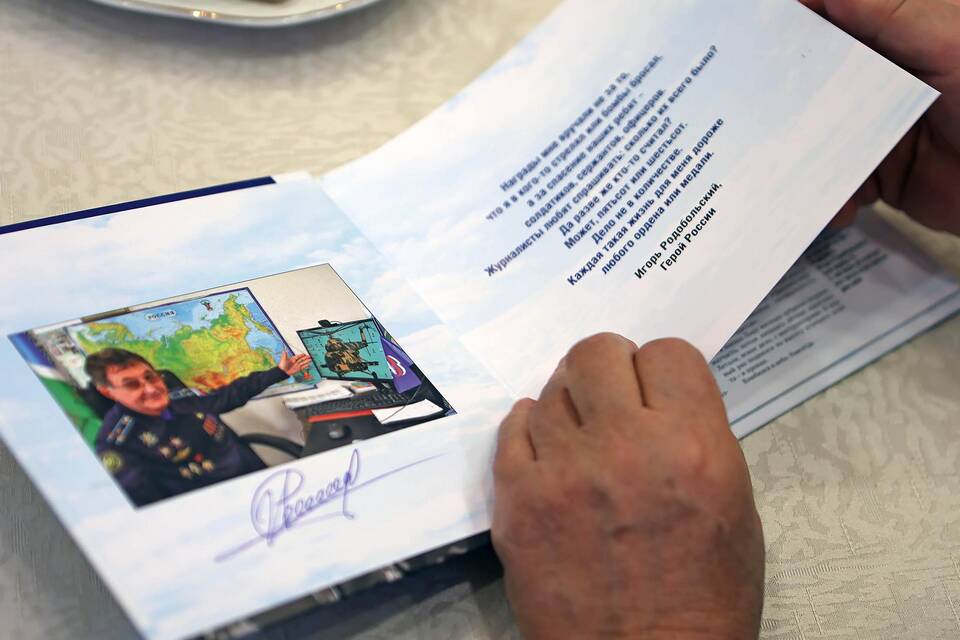 РОССИЯ
Награды мне вручали не за то,
что я в кого-то стрелял или бомбы бросал,
а за спасение наших ребят –
солдатиков, сержантов, офицеров.
Журналисты любят спрашивать: сколько их всего было?
Да разве же кто-то считал?
Может, пятьсот или шестьсот.
Дело не в количестве.
Каждая такая жизнь для меня дороже
любого ордена или медали.
Игорь Родобольский,
Герой России